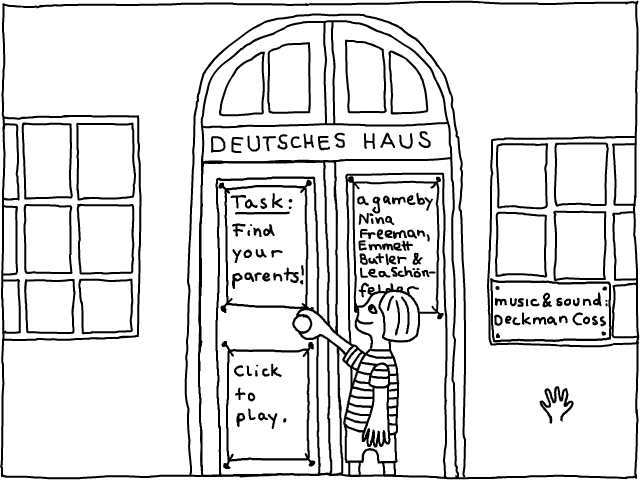 DEUTSCHES HAUS
Task:
Find
your
parents!
a game by
Nina
Freeman,
Emmett
Butler &
Lea Schön-
felder
Click
to
play.
music & sound:
Deckman Coss